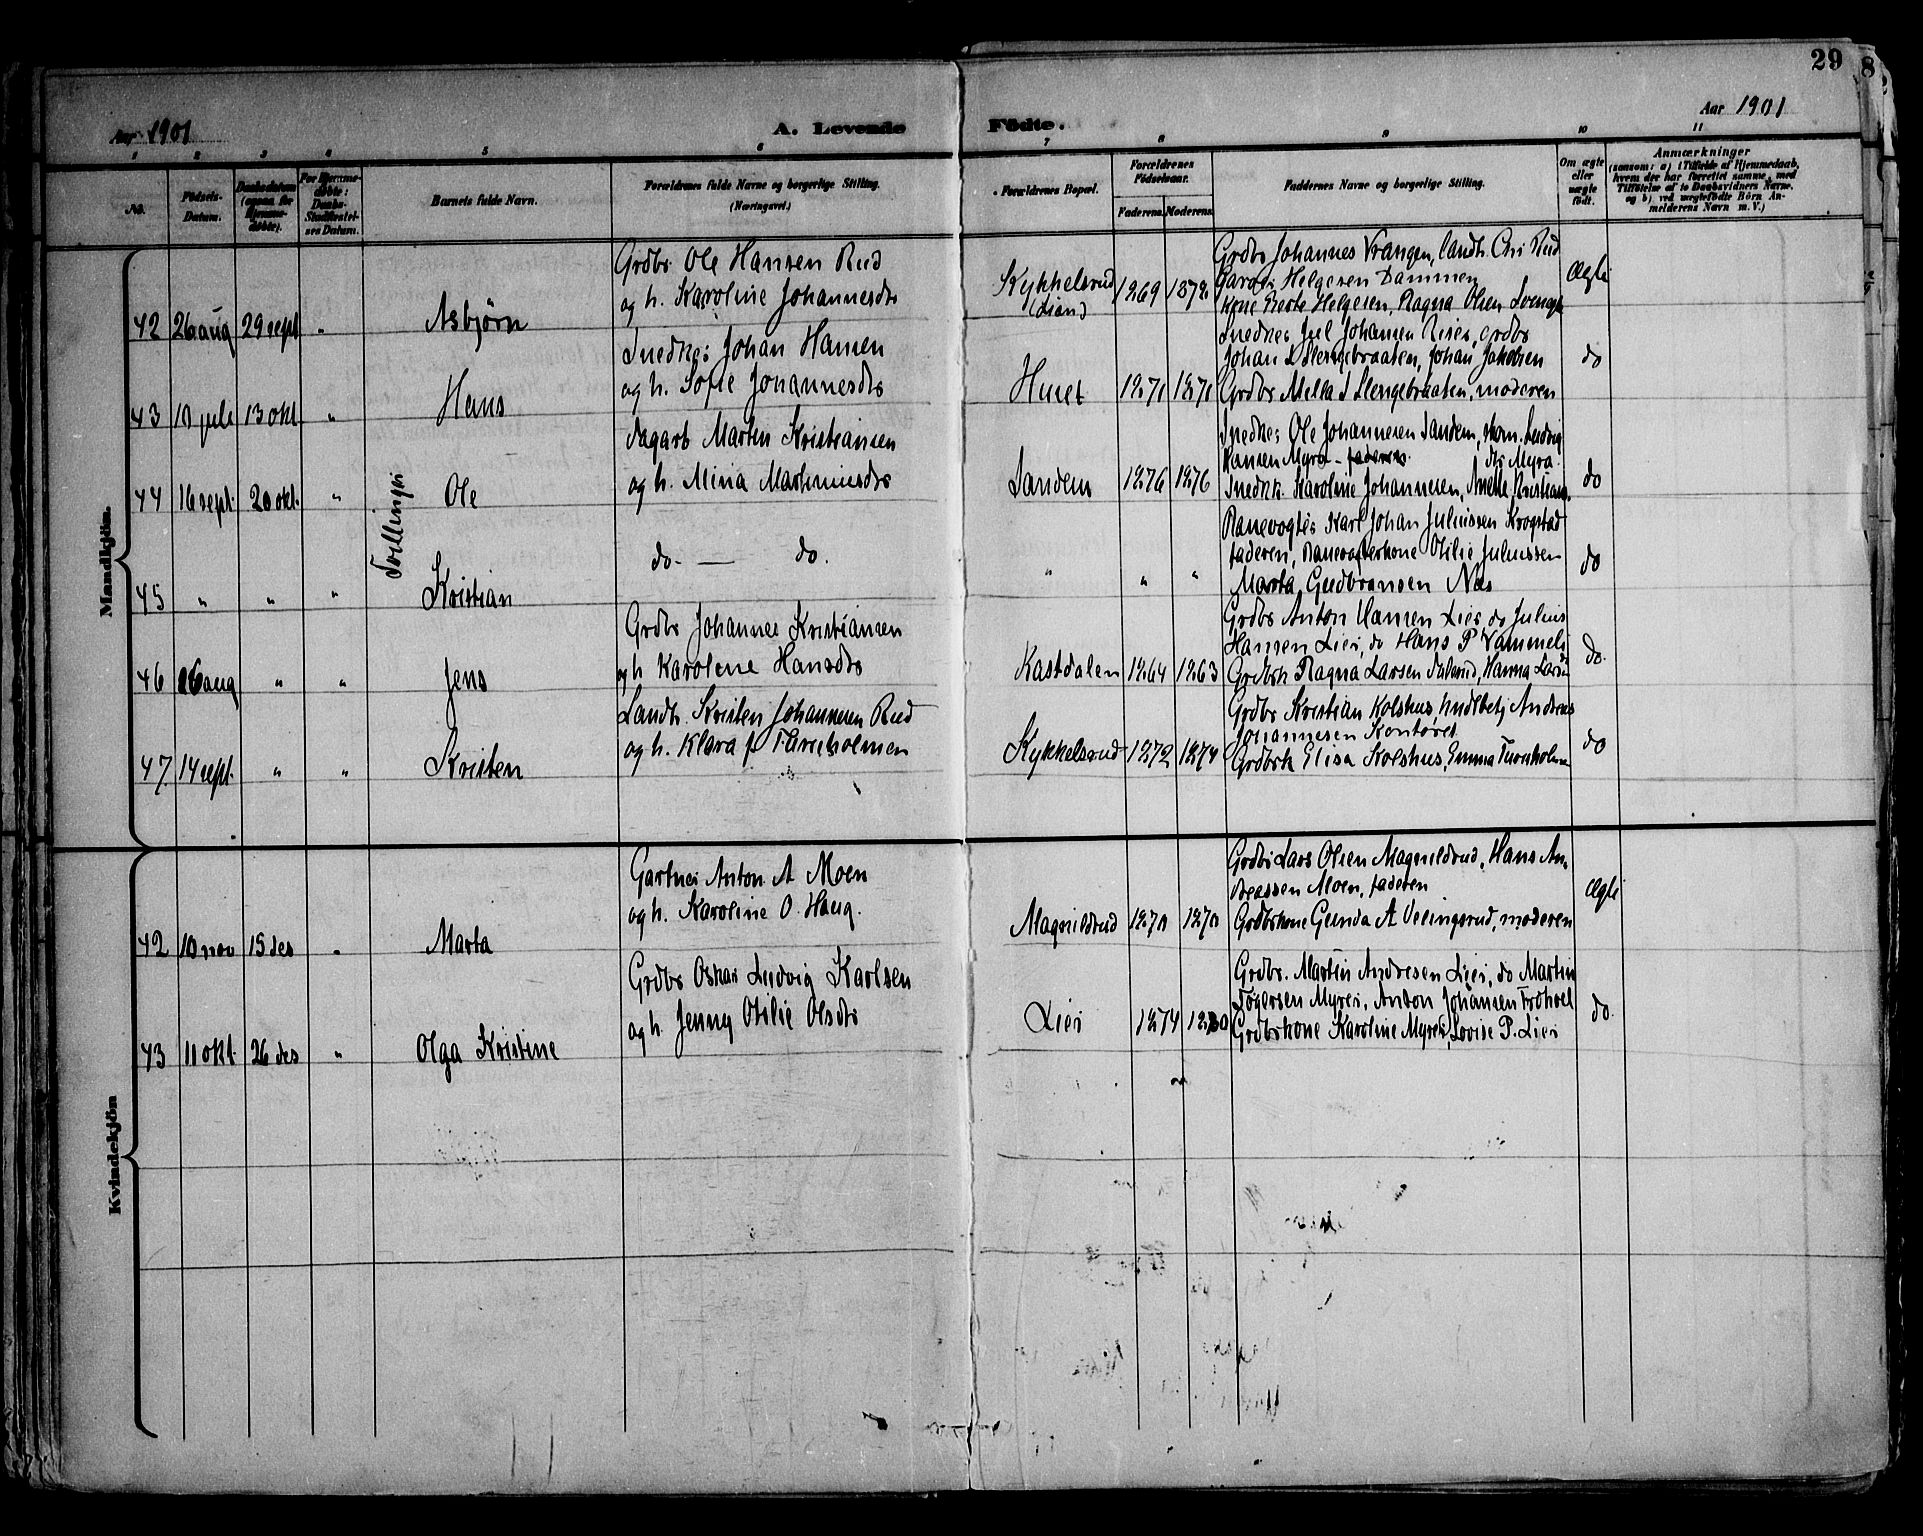 29
8
Aar 1901
A. Levende Födte.
Aar 1901
1 2 3 4 5 6 7 8 9 10 11
No.
Födsels-
Datum.
Daabsdatum
(ogsaa for
Hjemme-
döbte).
For Hjemme-
döbte:
Daabs-
Stadfæstel-
ses Datum.
Barnets fulde Navn.
Forældrenes fulde Navne og borgerlige Stilling.
(Næringsvei.)
Forældrenes Bopæl.
Forældrenes
Födselsaar.
Faderens.
Moderens.
Faddernes Navne og borgerlige Stilling.
Om ægte
eller
uægte
født.
Anmærkninger
(saasom: a) i Tilfælde af Hjemmedaab,
hvem der har forrettet samme, med
Tilföielse af to Daabsvidners Navne.
og b) ved uægtefödte Börn An-
melderens Navn m. V.)
Mandkjön.
42 26 aug 29 sept " Asbjørn
Grdbr Ole Hansen Rud
og h. Karoline Johannesdtr
Kykkelsrud
(Lian)
1869 1872
Grdbr Johannes Vrangen, landh. Chr Rud
Garver Helgesen Dammen
Kone Berte Helgesen, Ragna Olsen
Ægte
43 10 juli 13 okt " Hans
Snedker Johan Hansen
og h. Sofie Johannesdtr
Huset 1871 1871
Snedker Juel Johansen Riser, grdbr
Johan D Slengebraaten, Johan Jakobsen
Grdbr Mella D Slengebraaten, moderen
do
Tvillinger
44 16 sept. 20 okt. " Ole
Dagarb Marten Kristiansen
og h. Mina Martinusdtr
Sandem 1876 1876
Snedker Ole Johannesen Sandem, skom. Ludvig
Hansen Myra - faderen. dtr Myra
Snedkk. Karoline Johannesen, Anette Kristians.
do
45 " " " Kristian
do. — do.
" " "
Banevogter Karl Johan Juliussen Krogstad
faderen, Banevogterkone Otilie Juliussen
Marta Gudbransen Næs
do
46 26 aug " " Jens
Grdbr Johannes Kristiansen
og h Karolene Hansdtr
Kastdalen 1864 1863
Grdbr Anton Hansen Lier do Julius
Hansen Lier, do Hans P Vammeli
Grdbrk Ragna Larsen Dalerud, Hanna
do.
47. 14 sept. " " Kristen
Landh. Kristen Johannesen Rud
og h. Klara f. Tureholmen
Kykkelsrud 1872 1874
Grdbr Kristian Kolshus, hndlbetj Andreas
Johannesen Kontoret
Grdbrk Elisa Kolshus, Emma Tureholmen
do
Kvindekjön
42 10 nov 15 des " Marta
Gartner Anton A Moen
og h. Karoline O. Haug.
Magnildrud 1870 1870
Grdbr Lars Olsen Magnildrud, Hans An-
dreassen Moen, faderen
Grdbrkone Gunda A Veengsrud, moderen
Ægte
43 11 okt. 26 des " Olga Kristine
Grdbr Oskar Ludvig Karlsen
og h. Jenny Otilie Olsdtr
Lier 1874 1880
Grdbr. Martin Andresen Lier, do Martin
Torgersen Myrer, Anton Johansen Frohvel
Grdbrkone Karoline Myrer, Lovise P. Lier
do.